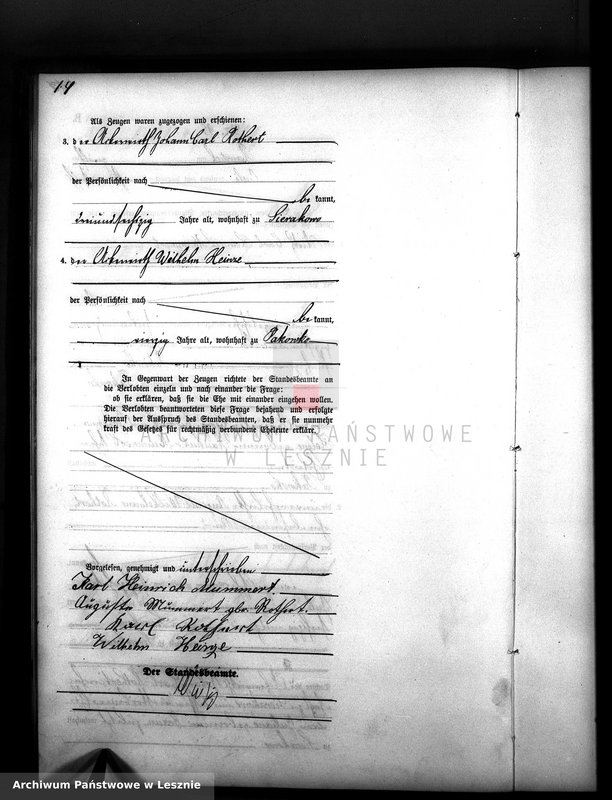 14
Als Zeugen waren zugezogen und erschienen:
3. der Ackerwirth Johann Carl Rothert
der Persönlichkeit nach
be kannt,
dreiundsechzig Jahre alt, wohnhaft zu Sierakowo
4. der Ackerwirth Wilhelm Heinze
der Persönlichkeit nach
be kannt,
Jahre alt, wohnhaft zu Pakowko
In Gegenwart der Zeugen richtete der Standesbeamte an
die Verlobten einzeln und nach einander die Frage:
ob sie erklären, daß sie die Ehe mit einander eingehen wollen.
Die Verlobten beantworteten diese Frage bejahend und erfolgte
hierauf der Ausspruch des Standesbeamten, daß er sie nunmehr
kraft des Gesetzes für rechtmäßig verbundene Eheleute erkläre.
ARCHIWUM PAŃSTWOWE
W LESZNIE
Vorgelesen, genehmigt und unterschrieben
Karl Heinrich Mummert.
Augusta Mummert gbr Rothert.
Karl Rothert
Wilhelm Heinze
Der Standesbeamte.
Archiwum Państwowe w Lesznie